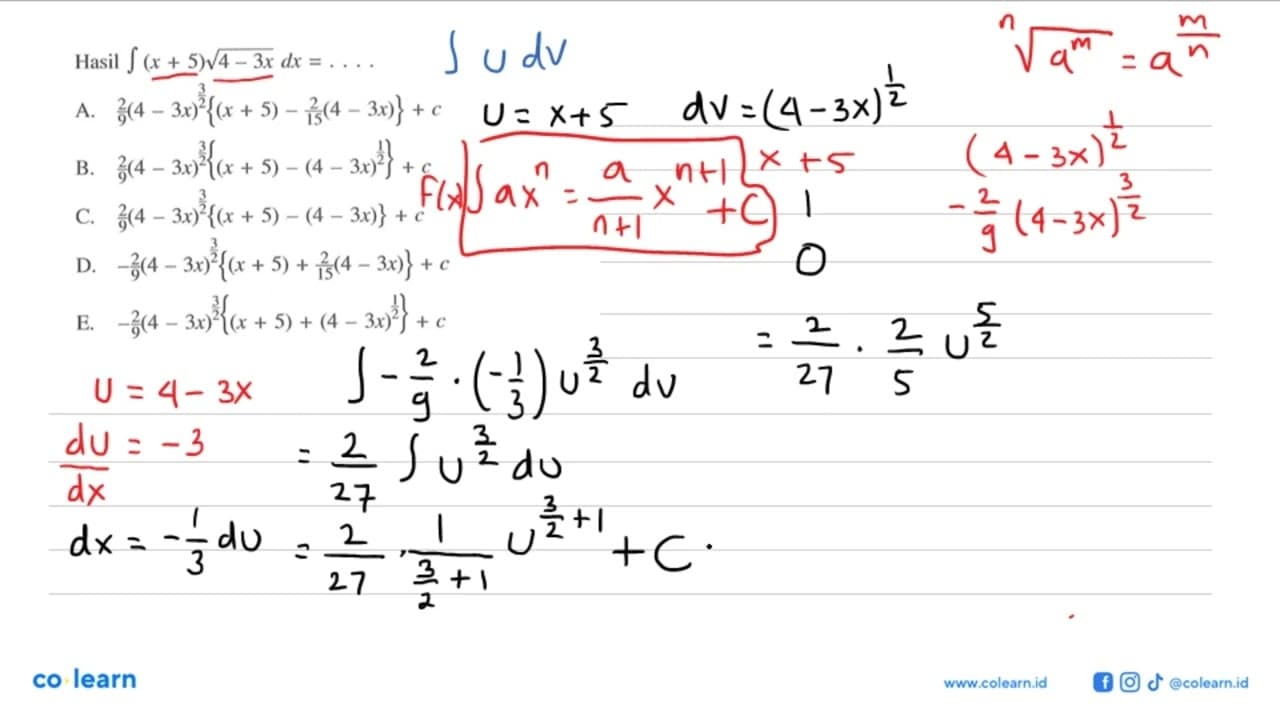 Hasil ∫ (x + 5)√(4 – 3x) dx = . . . .
A. 2/9(4 – 3x)^(3/2){(x + 5) – 2/15(4 – 3x)} + c
B. 2/9(4 – 3x)^(3/2){(x + 5) – (4 – 3x)^(1/2)} + c
C. 2/9(4 – 3x)^(3/2){(x + 5) – (4 – 3x)} + c
D. –2/9(4 – 3x)^(3/2){(x + 5) + 2/15(4 – 3x)} + c
E. –2/9(4 – 3x)^(3/2){(x + 5) + (4 – 3x)^(1/2)} + c
∫ U dV
ⁿ√(a^m) = a^(m/n)
U = x+5 dV = (4–3x)^(1/2)
F(x) ∫ ax^n = a/(n+1) x^(n+1) + C
x + 5
1
0
(4–3x)^(1/2)
–2/9 (4–3x)^(3/2)
U = 4–3x
du/dx = –3
dx = –1/3 du
∫ –2/9 · (–1/3) U^(3/2) du
= 2/27 ∫ U^(3/2) du
= 2/27 · 1/(3/2 + 1) U^(3/2 + 1) + C .
= 2/27 · 2/5 U^(5/2)
co learn
www.colearn.id
@colearn.id